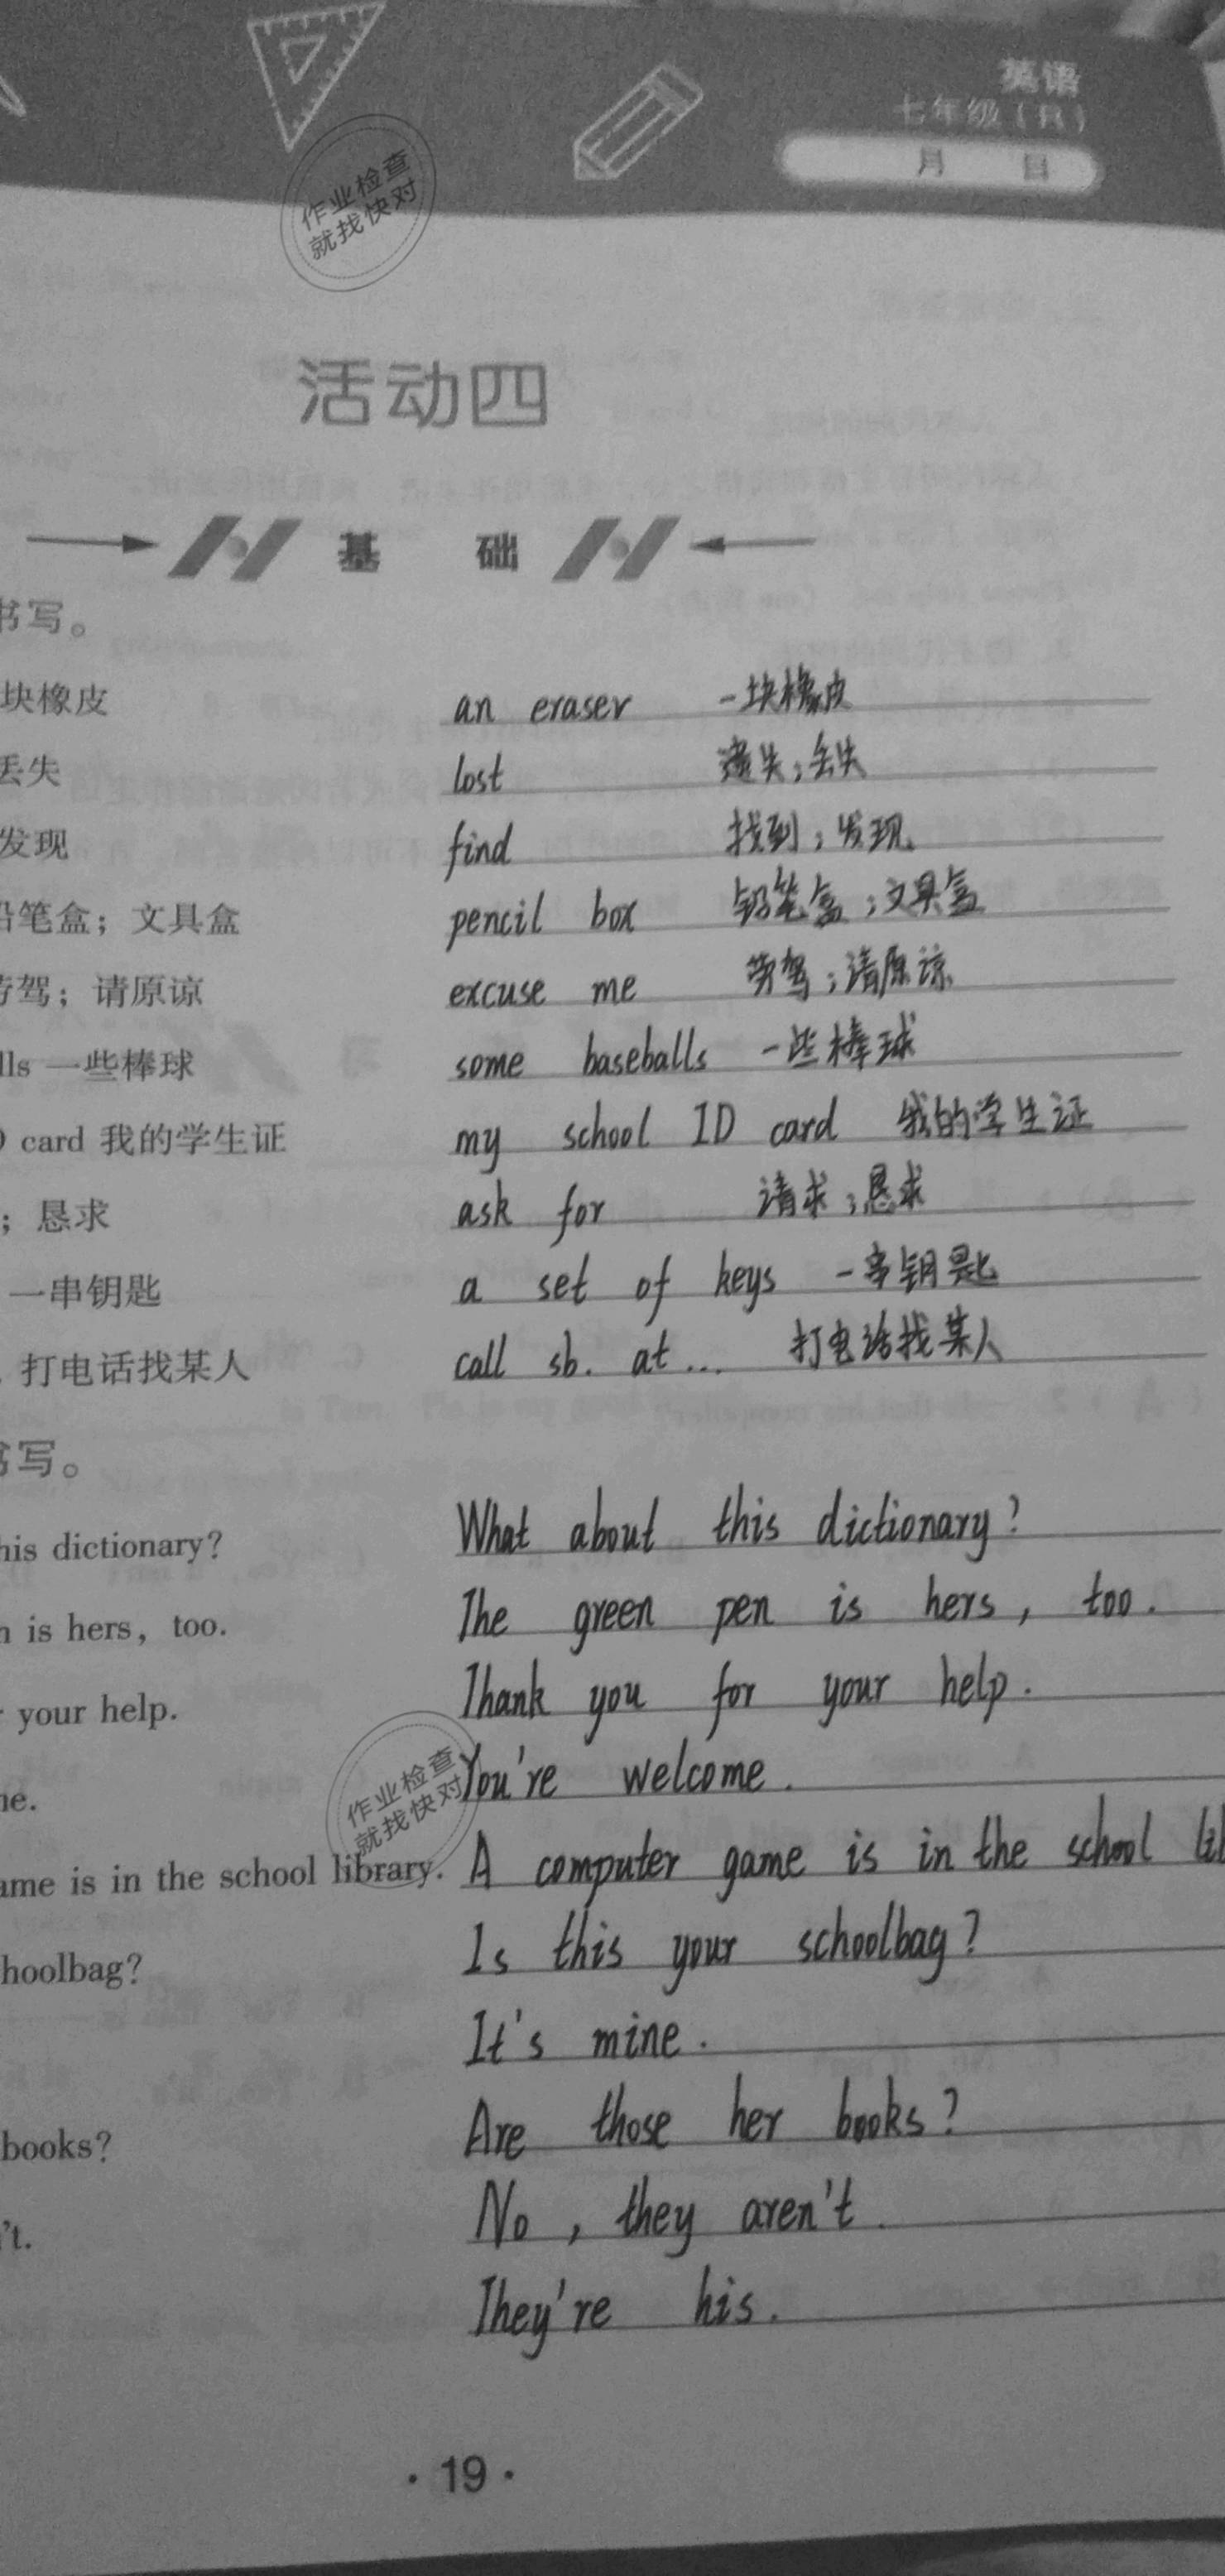 英语
七年级(R)
月 日
作业检查
就找快对
活动四
基 础
书写。
块橡皮 an eraser 一块橡皮
丢失 lost 遗失;丢失
发现 find 找到;发现
铅笔盒;文具盒 pencil box 铅笔盒;文具盒
劳驾;请原谅 excuse me 劳驾;请原谅
lls 一些棒球 some baseballs 一些棒球
card 我的学生证 my school ID card 我的学生证
;恳求 ask for 请求;恳求
一串钥匙 a set of keys 一串钥匙
打电话找某人 call sb. at... 打电话找某人
书写。
his dictionary? What about this dictionary?
n is hers, too. The green pen is hers, too.
your help. Thank you for your help.
ne. You're welcome.
作业检查
就找快对
ame is in the school library. A computer game is in the school
hoolbag? Is this your schoolbag?
It's mine.
books? Are those her books?
't. No, they aren't.
They're his.
·19·